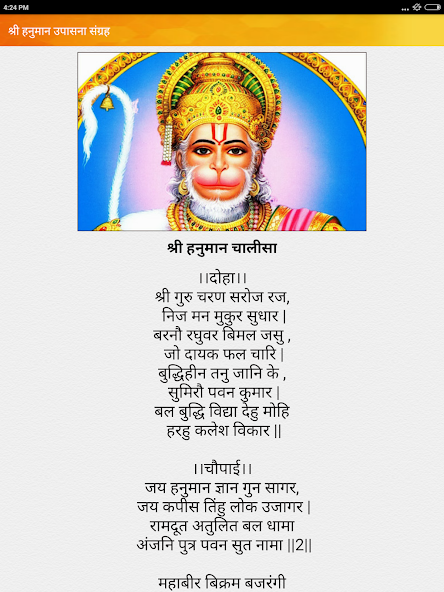 4:24 PM
श्री हनुमान उपासना संग्रह
श्री हनुमान चालीसा
।।दोहा।।
श्री गुरु चरण सरोज रज,
निज मन मुकुर सुधार |
बरनौ रघुवर बिमल जसु ,
जो दायक फल चारि |
बुद्धिहीन तनु जानि के ,
सुमिरौ पवन कुमार |
बल बुद्धि विद्या देहु मोहि
हरहु कलेश विकार ||
।।चौपाई।।
जय हनुमान ज्ञान गुन सागर,
जय कपीस तिंहु लोक उजागर |
रामदूत अतुलित बल धामा
अंजनि पुत्र पवन सुत नामा ||2||
महाबीर बिक्रम बजरंगी